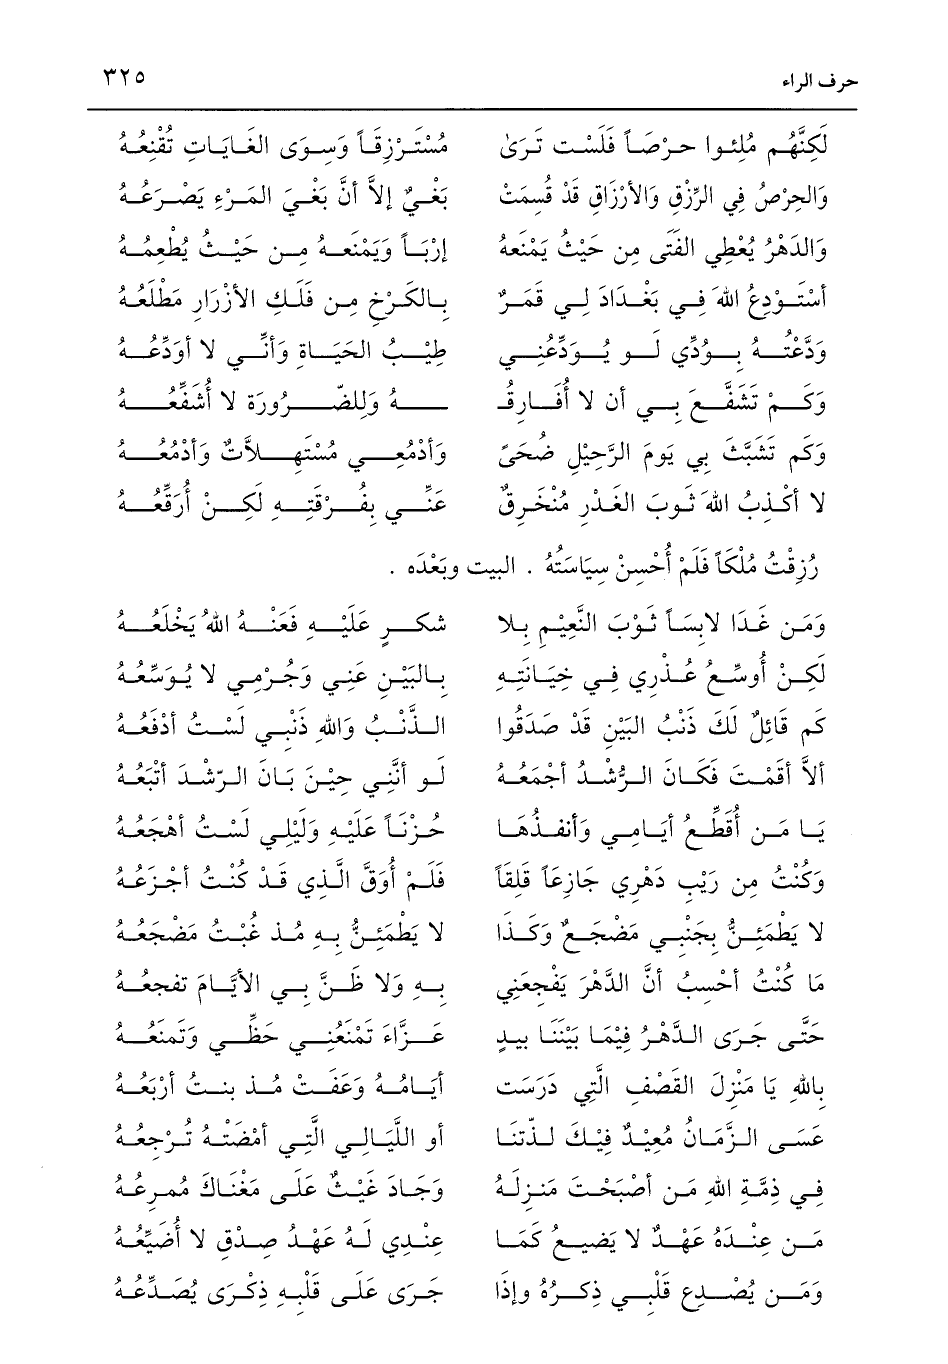 حرف الراء ٣٢٥
لَكِنَّهُم مُلِئوا حرْصَاً فَلسْت تَرَىٰ مُسْتَرْزِقَاً وَسِوَى الغَايَاتِ تُقْنِعُهُ
وَالحِرْصُ فِي الرِّزْقِ وَالأرْزَاقِ قَدْ قُسِمَتْ بَغْيٌ إلاَّ أنَّ بَغْيَ المَرْءِ يَصْرَعُهُ
وَالدَهْرُ يُعْطِي الفَتَى مِن حَيْثُ يَمْنَعهُ إرْبَاً وَيَمْنَعهُ مِن حَيْثُ يُطْعِمُهُ
أسْتَوْدِعُ اللهَ فِي بَغْدَادَ لِي قَمَرٌ بِالكَرْخِ مِن فَلَكِ الأزْرَارِ مَطْلَعُهُ
وَدَّعْتُهُ بِوُدِّي لَو يُوَدِّعُنِي طِيْبُ الحَيَاةِ وَأنِّي لا أوَدِّعُهُ
وَكَمْ تَشَفَّعَ بِي أن لا أُفَارِقُـ ـهُ وَلِلضّرُورَةِ لا أُشَفِّعُهُ
وَكَم تَشَبَّثَ بِي يَومَ الرَّحِيْلِ ضُحَىً وَأدْمُعِي مُسْتَهِلاَّتٌ وَأدْمُعُهُ
لا أكْذِبُ اللهَ ثَوبَ الغَدْرِ مُنْخَرِقٌ عَنِّي بِفُرْقَتِهِ لَكِنْ أُرَقِّعُهُ
رُزِقْتُ مُلْكَاً فَلَمْ أُحْسِنْ سِيَاسَتَهُ . البيت وبَعْدَه .
وَمَن غَدَا لابِسَاً ثَوْبَ النَّعِيْمِ بِلا شكرٍ عَلَيْهِ فَعَنْهُ اللهُ يَخْلَعُهُ
لَكِنْ أُوسِّعُ عُذْرِي فِي خِيَانَتِهِ بِالبَيْنِ عَنِي وَجُرْمِي لا يُوَسِّعُهُ
كَم قَائِلٌ لَكَ ذَنْبُ البَيْنِ قَدْ صَدَقُوا الذَّنْبُ وَاللهِ ذَنْبِي لَسْتُ أدْفَعُهُ
ألاَّ أقَمْتَ فَكَانَ الرُّشْدُ أجْمَعُهُ لَو أنَّنِي حِيْنَ بَانَ الرّشْدَ أتْبَعُهُ
يَا مَن أُقَطِّعُ أيَامِي وَأنفِذُهَا حُزْنَاً عَلَيْهِ وَلَيْلِي لَسْتُ أهْجَعُهُ
وَكُنْتُ مِن رَيْبِ دَهْرِي جَازِعَاً قَلِقَاً فَلَمْ أُوَقَّ الَّذِي قَدْ كُنْتُ أجْزَعُهُ
لا يَطْمَئِنُّ بِجَنْبِي مَضْجَعٌ وَكَذَا لا يَطْمَئِنُّ بِهِ مُذ غِبْتُ مَضْجَعُهُ
مَا كُنْتُ أحْسبُ أنَّ الدَّهْرَ يَفْجِعَنِي بِهِ وَلا ظَنَّ بِي الأيَّامَ تفجعُهُ
حَتَّى جَرَى الدَّهْرُ فِيْمَا بَيْنَنَا بيدٍ عَزَّاءَ تَمْنَعُنِي حَظِّي وَتَمنَعُهُ
بِاللهِ يَا مَنْزِلَ القَصْفِ الَّتِي دَرَسَت أيَامُهُ وَعَفَتْ مُذ بِنتُ أرْبَعُهُ
عَسَى الزَّمَانُ مُعِيْدٌ فِيْكَ لذّتنَا أو اللَّيَالِي الَّتِي أمْضَتْهُ تُرْجِعُهُ
فِي ذِمَّةِ اللهِ مَن أصْبَحْتَ مَنزِلَهُ وَجَادَ غَيْثٌ عَلَى مَغْنَاكَ مُمرعُهُ
مَن عِنْدَهُ عَهْدٌ لا يَضِيعُ كَمَا عِنْدِي لَهُ عَهْدُ صِدْقٍ لا أُضَيِّعُهُ
وَمَن يُصْدِعِ قَلْبِي ذِكرُهُ وإذَا جَرَى عَلَى قَلْبِهِ ذِكْرَى يُصَدِّعُهُ